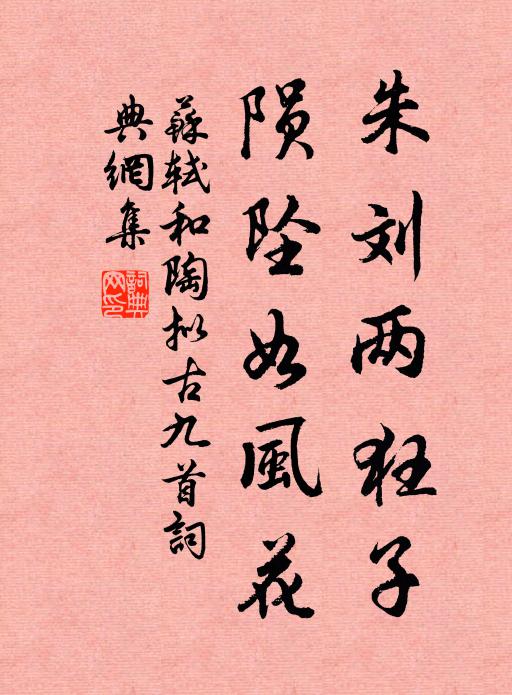 朱刘两狂子
陨坠如风花
苏轼和陶拟古九首词
典网集
词典网印